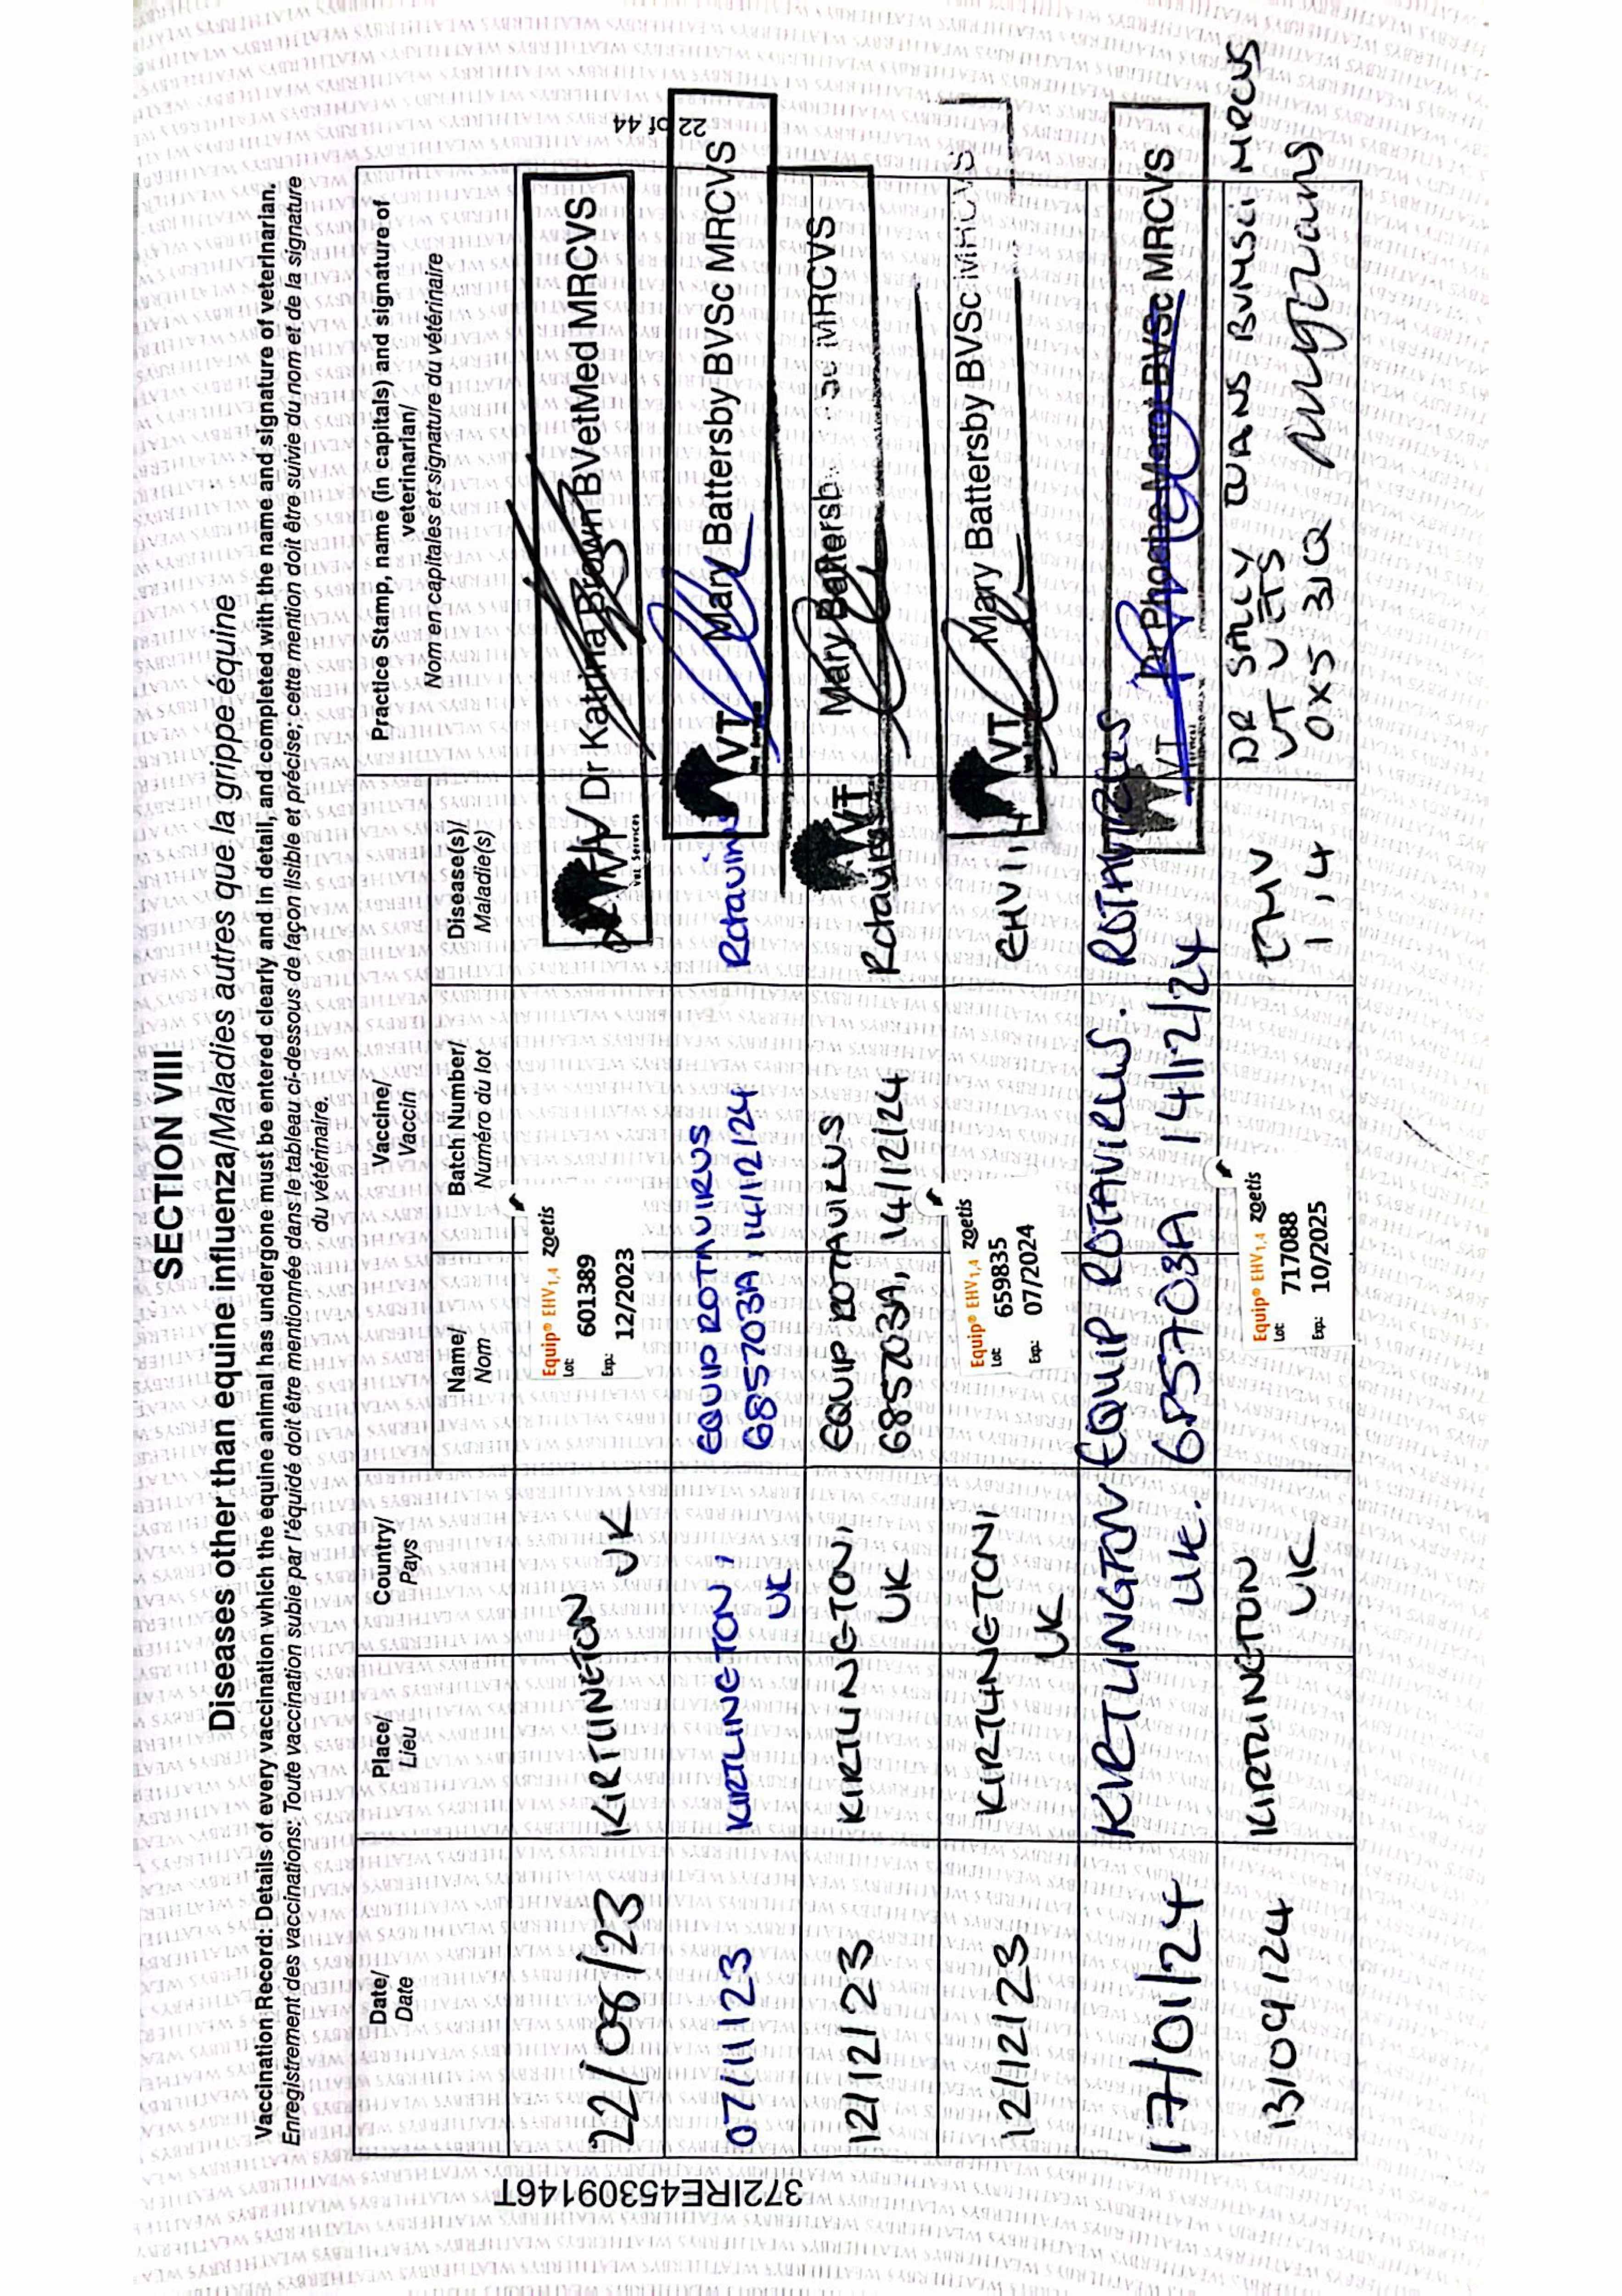 SECTION VIII
Diseases other than equine influenza/Maladies autres que la grippe équine
Vaccination Record: Details of every vaccination which the equine animal has undergone must be entered clearly and in detail, and completed with the name and signature of veterinarian.
Enregistrement des vaccinations: Toute vaccination subie par l'équidé doit être mentionnée dans le tableau ci-dessous de façon lisible et précise; cette mention doit être suivie du nom et de la signature
du vétérinaire.
Date/ Date
Place/ Lieu
Country/ Pays
Vaccine/ Vaccin
Name/ Nom
Batch Number/ Numéro du lot
Disease(s)/ Maladie(s)
Practice Stamp, name (in capitals) and signature of
veterinarian/
Nom en capitales et signature du vétérinaire
22/08/23 KIRTLINGTON UK
Equip® EHV1,4 zoetis
Lot: 601389
Exp.: 12/2023
Dr Katrina Brown BVetMed MRCVS
Vet Services
07/11/23 KIRTLINGTON, UK
EQUIP ROTAVIRUS
685703A, 14/12/24
Rotavirus
VT Mary Battersby BVSc MRCVS
12/12/23 KIRTLINGTON, UK
EQUIP ROTAVIRUS
685703A, 14/12/24
Rotavirus
VT Mary MRCVS
12/12/23 KIRTLINGTON, UK
Equip® EHV1,4 zoetis
Lot: 659835
Exp.: 07/2024
EHV 1,4
VT Mary Battersby BVSc MRCVS
17/01/24 KIRTLINGTON UK.
EQUIP ROTAVIRUS. ROTAVIRUS
685703A 14/12/24
VT Dr Phoebe BVSc MRCVS
13/09/24 KIRTLINGTON UK
Equip® EHV1,4 zoetis
Lot: 717088
Exp.: 10/2025
EHV
1,4
DR SALLY EVANS BVMSci MRCVS
VT VETS
OX5 3JQ
22 of 44
372IRE45309146T